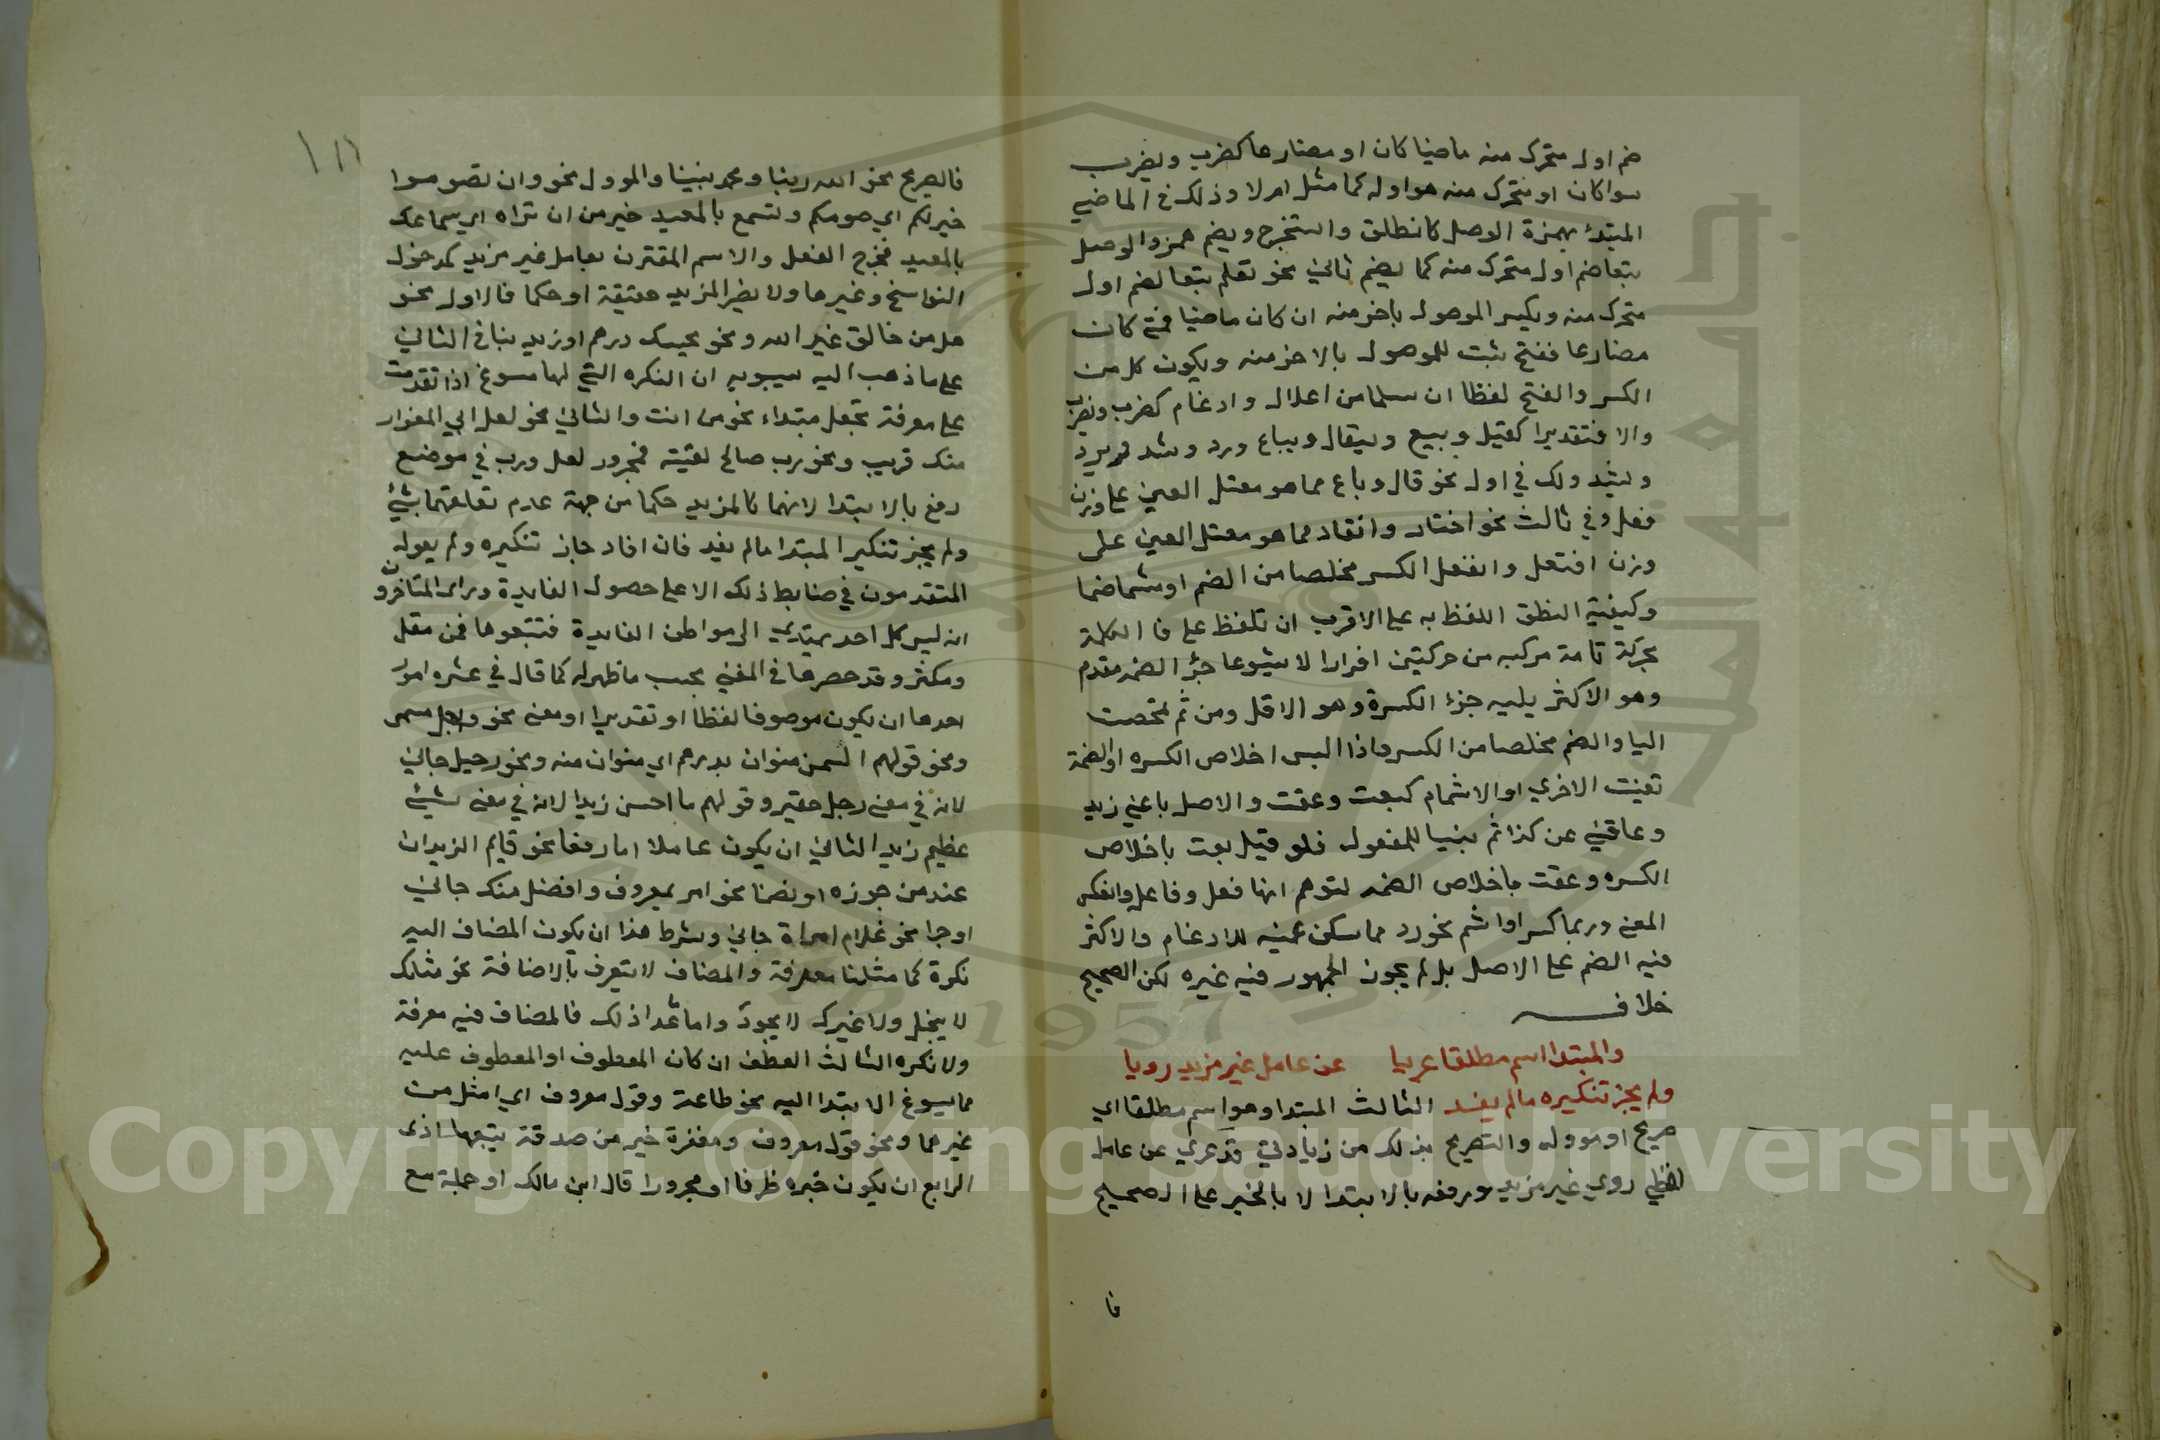 ضم اول متحرك منه ماضيا كان او مضارعا كضرب ويضرب
سوا كان او متحرك منه هو اوله كما مثل ام لا وذلك في الماضي
المبتدئ بهمزة الوصل كانطلق واستخرج ويضم همزو الوصل
تبعا ضم اول متحرك منه كما يضم ثاني نحو تعلم تبعا لضم اول
متحرك منه ويكسر الموصول باخر منه ان كان ماضيا فمتى كان
مضارعا ففتح ثبت للموصول بالاخر منه ويكون كل من
الكسر والفتح لفظا ان سلما من اعلال وادغام كضرب ويضرب
والا فتقديرا كقيل وبيع ويقال ويباع ورد وشد ويرد
ويشد ولك في اول نحو قال وباع مما هو معتل العين على وزن
فعل وفي ثالث نحو اختار وانقاد مما هو معتل العين على
وزن افتعل وانفعل الكسر مخلصا من الضم او مشما ضما
وكيفية النطق اللفظ به على الاقرب ان تلفظ على فا الكلمة
بحركة تامة مركبه من حركتين افرازا لا شيوعا جزؤ الضمه مقدم
وهو الاكثر يليه جزء الكسرة وهو الاقل ومن ثم تمحصت
اليا والضم مخلصا من الكسر واذا البس اخلاص الكسره او الضمة
تعينت الاخري او الاشمام كبعت وعقت والاصل باعني زيد
وعاقني عن كذا ثم بنيا للمفعول فلو قيل بعت باخلاص
الكسره وعقت باخلاص الضمه لتوهم انها فعل وفاعل وانعكس
المعني وربما كسر او اشم نحو رد مما سكن عينه للادغام والاكثر
فيه الضم على الاصل بل لم يجوز الجمهور فيه غيره لكن الصحيح
خلافه
والمبتدا اسم مطلقا عريا عن عامل غير مزيد رويا
ولم يجز تنكيره مالم يفد الثالث المبتدا وهو اسم مطلقا اي
صريح او موول والتصريح بذلك من زيادتي وقد عري عن عامل
لفظي روي غير مزيد ورفعه بالابتدا لا بالخبر على الصحيح
فا
فالصريح نحو الله ربنا ومحمد نبينا والموول نحو وان تصوموا
خير لكم اي صومكم وتسمع بالمعيد خير من ان تراه اي سماعك
بالمعيد فخرج الفعل والاسم المقترن بعامل غير مزيد كمدخول
النواسخ وغيرها ولا يضر المزيد حقيقة او حكما فالاول نحو
هل من خالق غير الله ونحو بحسبك درهم او زيد بنا في الثاني
على ما ذهب اليه سيبويه ان النكره التي لها مسوغ اذا تقدمت
على معرفة تجعل مبتداء نحو من انت والثاني نحو لعل ابي المغوار
منك قريب ونحو رب صالح لقيته فمجرور لعل ورب في موضع
رفع بالابتدا لانهما كالمزيد حكما من جهة عدم تعلقهما بشئ
ولم يجز تنكير المبتدا مالم يفد فان افاد جاز تنكيره ولم يعول
المتقدمون في ضابط ذلك الا على حصول الفايدة وراى المتاخرون
انه ليس كل احد يهتدي الى مواطن الفايدة فتتبعوها فمن مقل
ومكثر وقد حصرها في المغني بحسب ما ظهر له كما قال في عشره امور
احدها ان يكون موصوفا لفظا او تقديرا او معنى نحو واجل مسمى
ونحو قولهم السمن منوان بدرهم اي منوان منه ونحو رجيل جاني
لانه في معنى رجل حقير وقولهم ما احسن زيدا لانه في معنى شيئ
عظيم زيد الثاني ان يكون عاملا اما رفعا نحو قايم الزيدان
عند من جوزه او نصبا نحو امر بمعروف وافضل منك جاني
او جرا نحو غلام امراة جاني وشرط هذا ان يكون المضاف اليه
نكرة كما مثلنا معرفة والمضاف لا يتعرف بالاضافة نحو مثلك
لا يبخل ولا غيرك لا يجود واما عدا ذلك فالمضاف فيه معرفة
ولا نكره الثالث العطف ان كان المعطوف او المعطوف عليه
مما يسوغ الابتدا اليه نحو طاعة وقول معروف اي امثل من
غيرهما ونحو قول معروف ومغفرة خير من صدقة يتبعها اذى
الرابع ان يكون خبره ظرفا او مجرورا قال ابن مالك او جملة مع
Copyright © King Saud University
1957